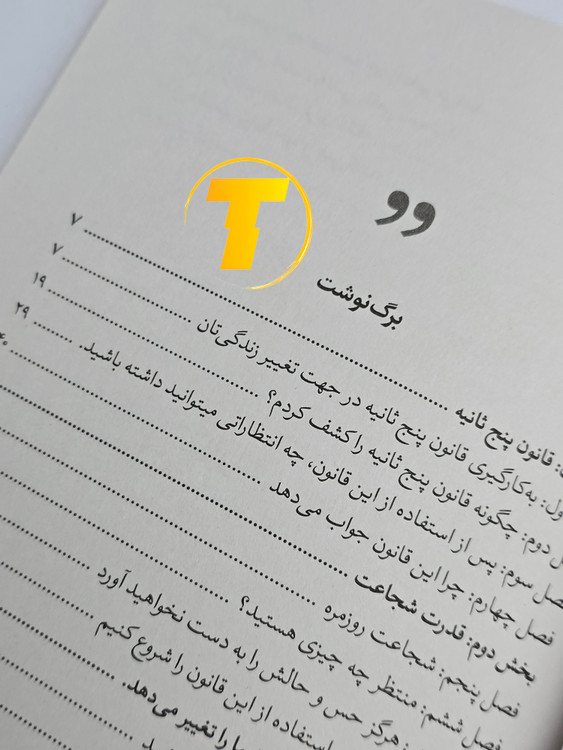 T
برگ‌نوشت
: قانون پنج ثانیه ........ ۷
اول: به‌کارگیری قانون پنج ثانیه در جهت تغییر زندگی‌تان ........ ۷
دوم: چگونه قانون پنج ثانیه را کشف کردم؟ ........ ۱۹
فصل سوم: پس از استفاده از این قانون، چه انتظاراتی میتوانید داشته باشید. ........ ۲۹
فصل چهارم: چرا این قانون جواب می‌دهد ........
بخش دوم: قدرت شجاعت ........
فصل پنجم: شجاعت روزمره ........
فصل ششم: منتظر چه چیزی هستید؟ ........
هرگز حس و حالش را به دست نخواهید آورد ........
استفاده از این قانون را شروع کنیم ........
را تغییر می‌دهد. ........